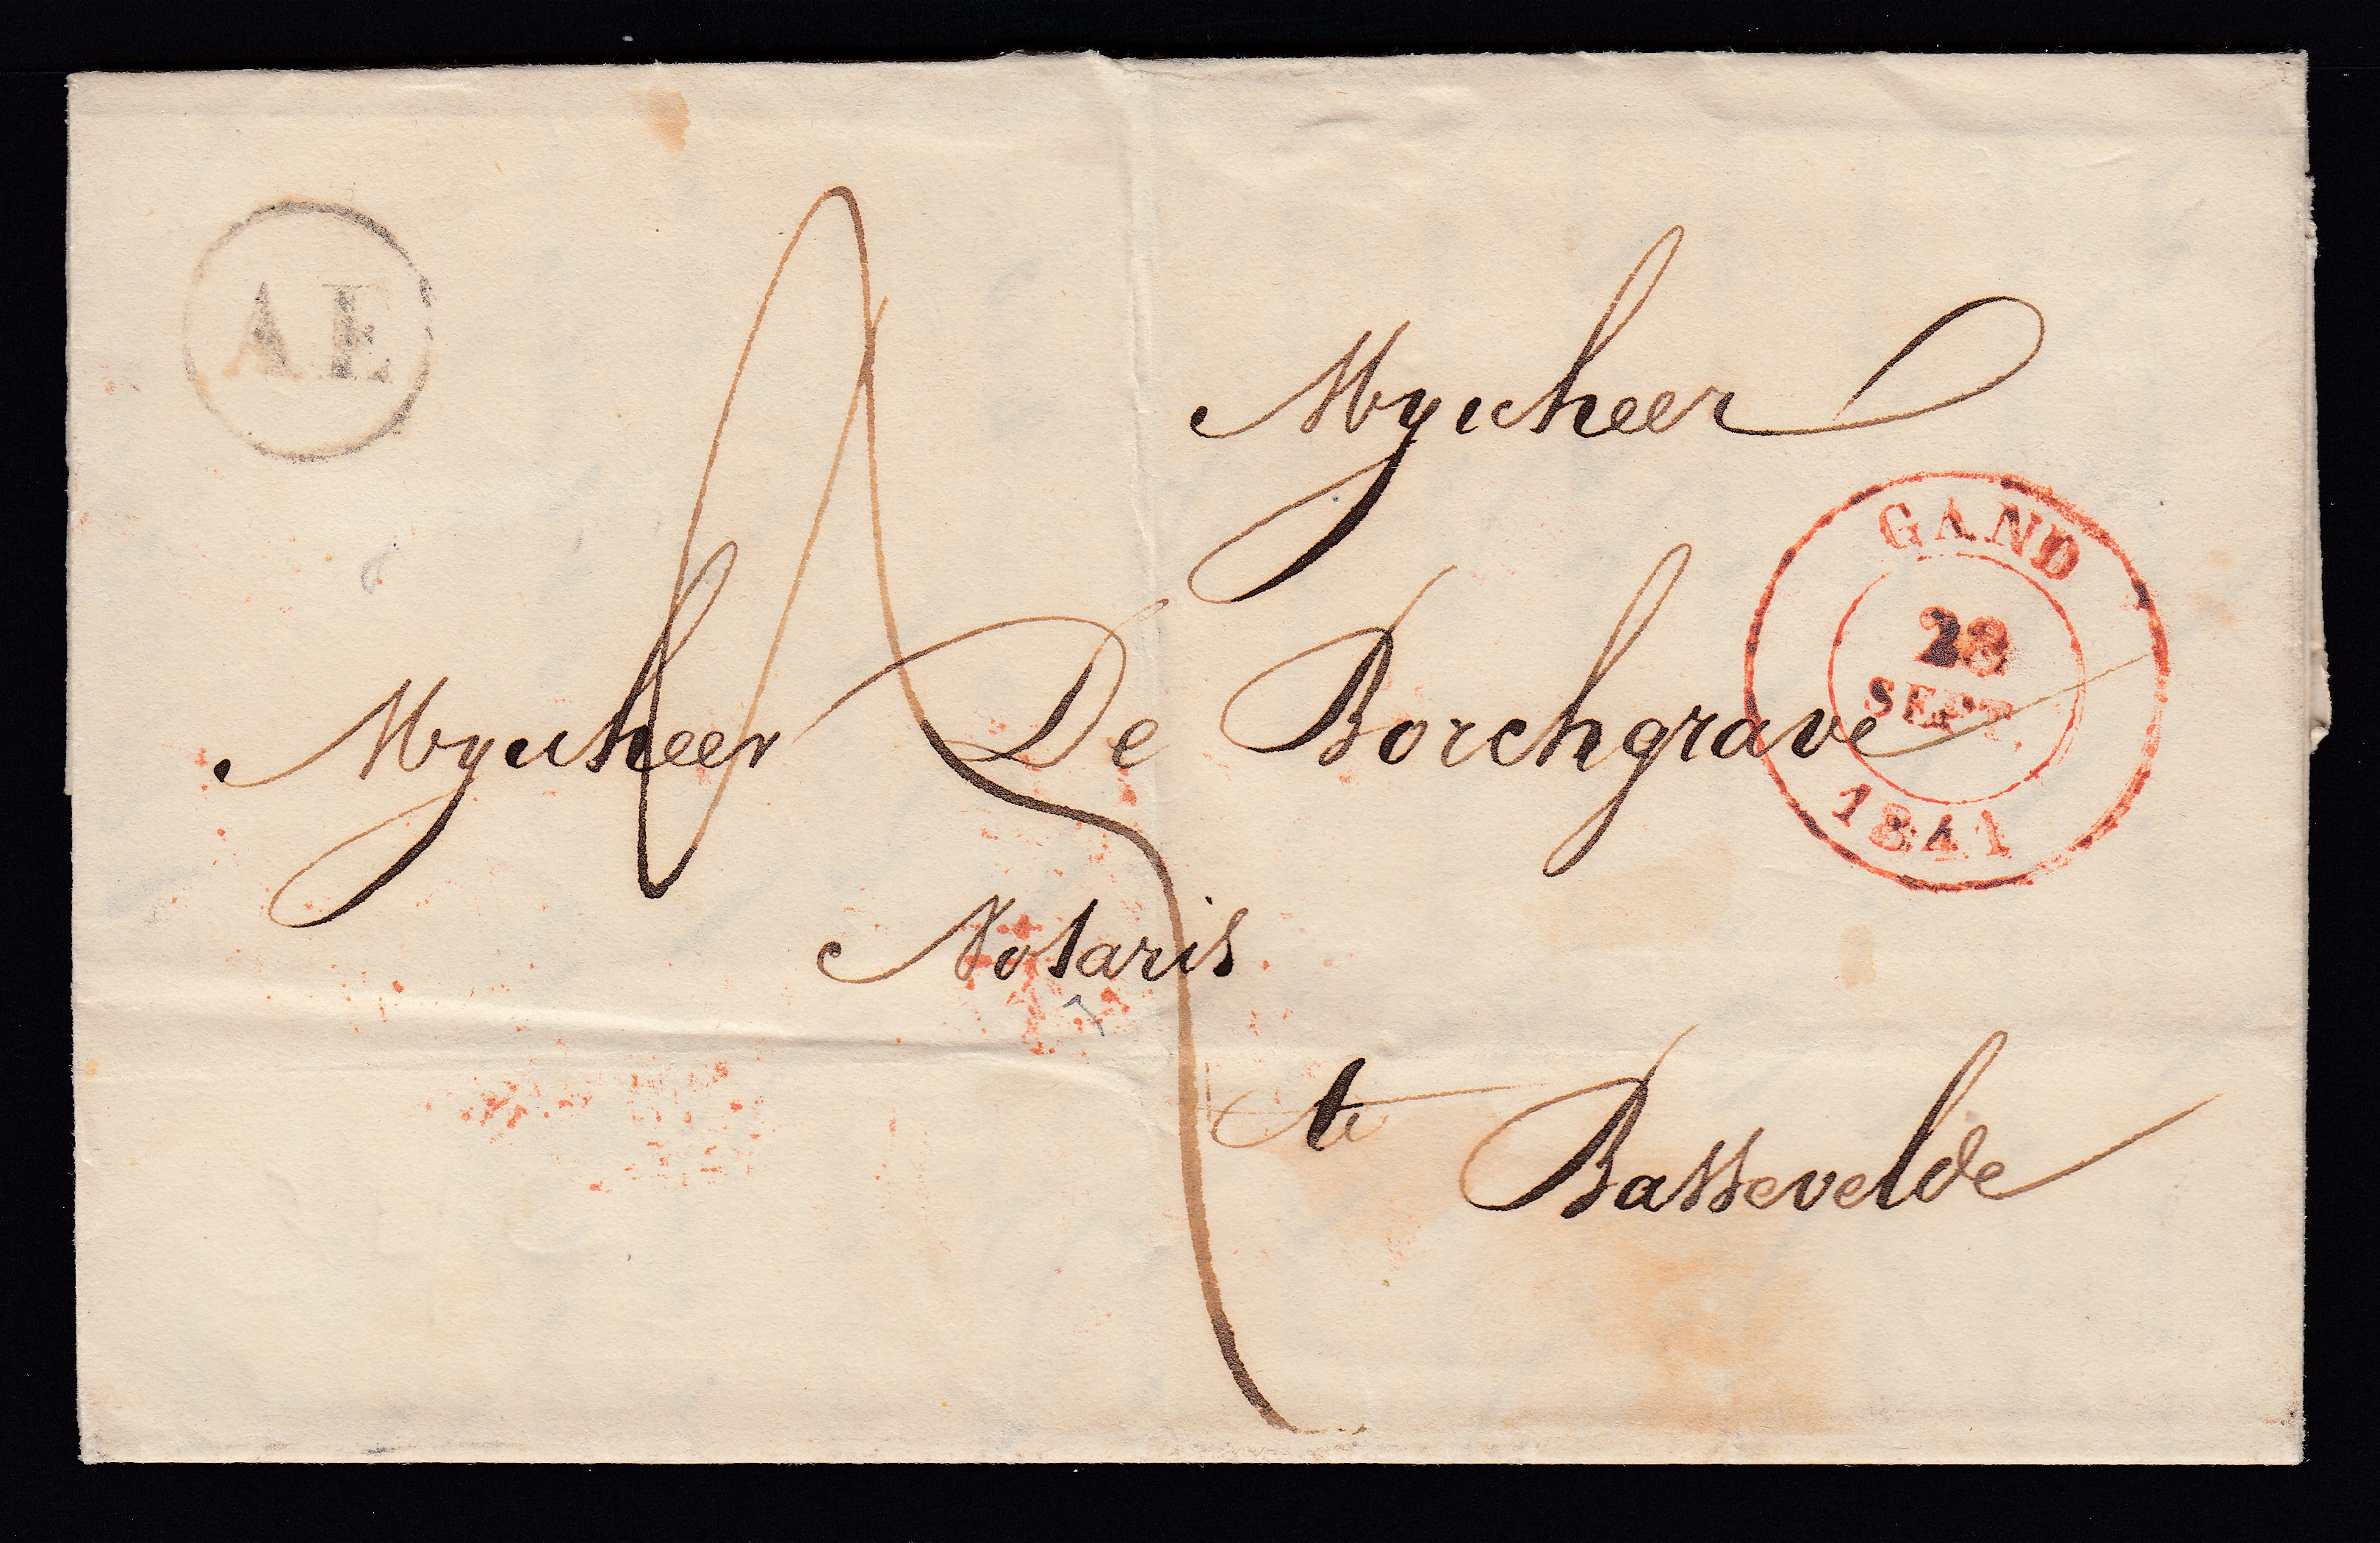 AE
Mynheer
GAND
28
SEPT.
1841
Mynheer De Borchgrave
Notaris
te Bassevelde